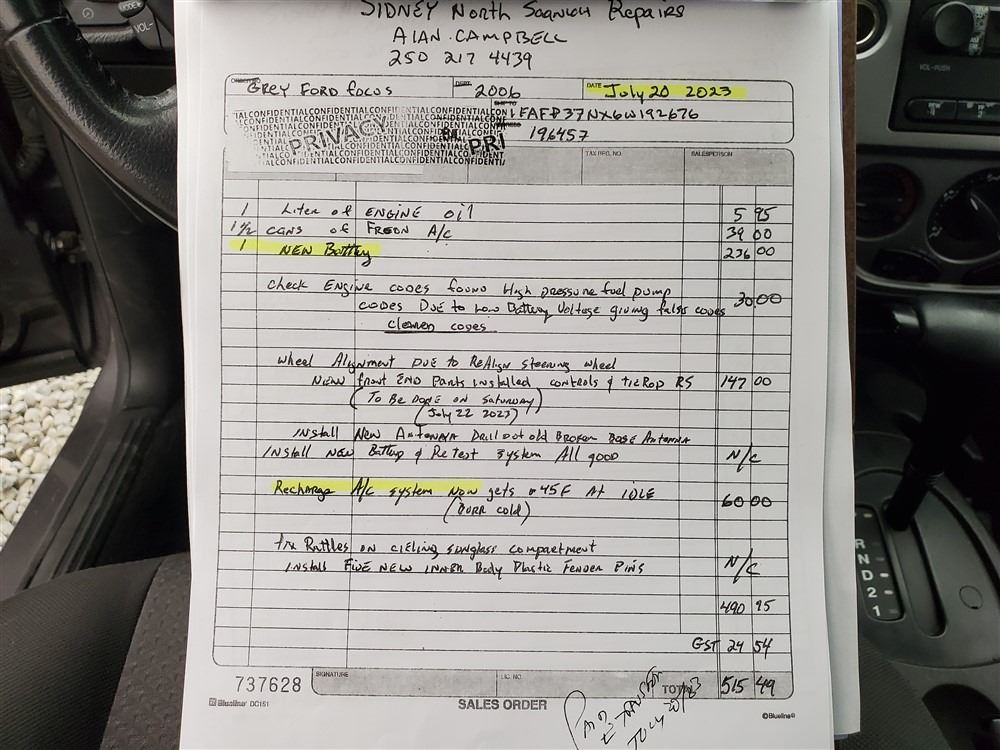 SIDNEY North Saanich Repairs
AlAN. CAMPBELL
250 217 4439
GREY FORD focus 2006 DATE July 20 2023
1FAFP37NX6W192676
CONFIDENTIAL PRIVACY PRI 196457
TAX REG. NO. SALESPERSON
1 Liter of ENGINE oil 5 95
1 1/2 cans of FREON A/C 39 00
1 NEW Battery 236 00
Check ENGINE codes found High pressure fuel pump 30.00
codes Due to Low Battery Voltage giving false codes
cleared codes
wheel Alignment DUE to ReAlign Steering wheel
NEW front END Parts installed controls & tieRod RS 147 00
(To Be DONE on Saturday)
(July 22 2023)
Install New Antenna Drill out old Broken Base Antenna
Install NEW Battery & ReTest system All good N/C
Recharge A/c system Now gets 45F At iDLE 60 00
(Burr cold)
fix Rattles on cieling sunglass compartment
Install FivE NEW INNER Body Plastic Fender Pins N/C
490 95
GST 24 54
737628 SIGNATURE LIC. NO. TOTAL 515 49
Blueline DC151 SALES ORDER Blueline
PAID
E-TRANSFER
JULY 20/23
MODE
VOL-
VOL-PUSH
R
N
D
2
1